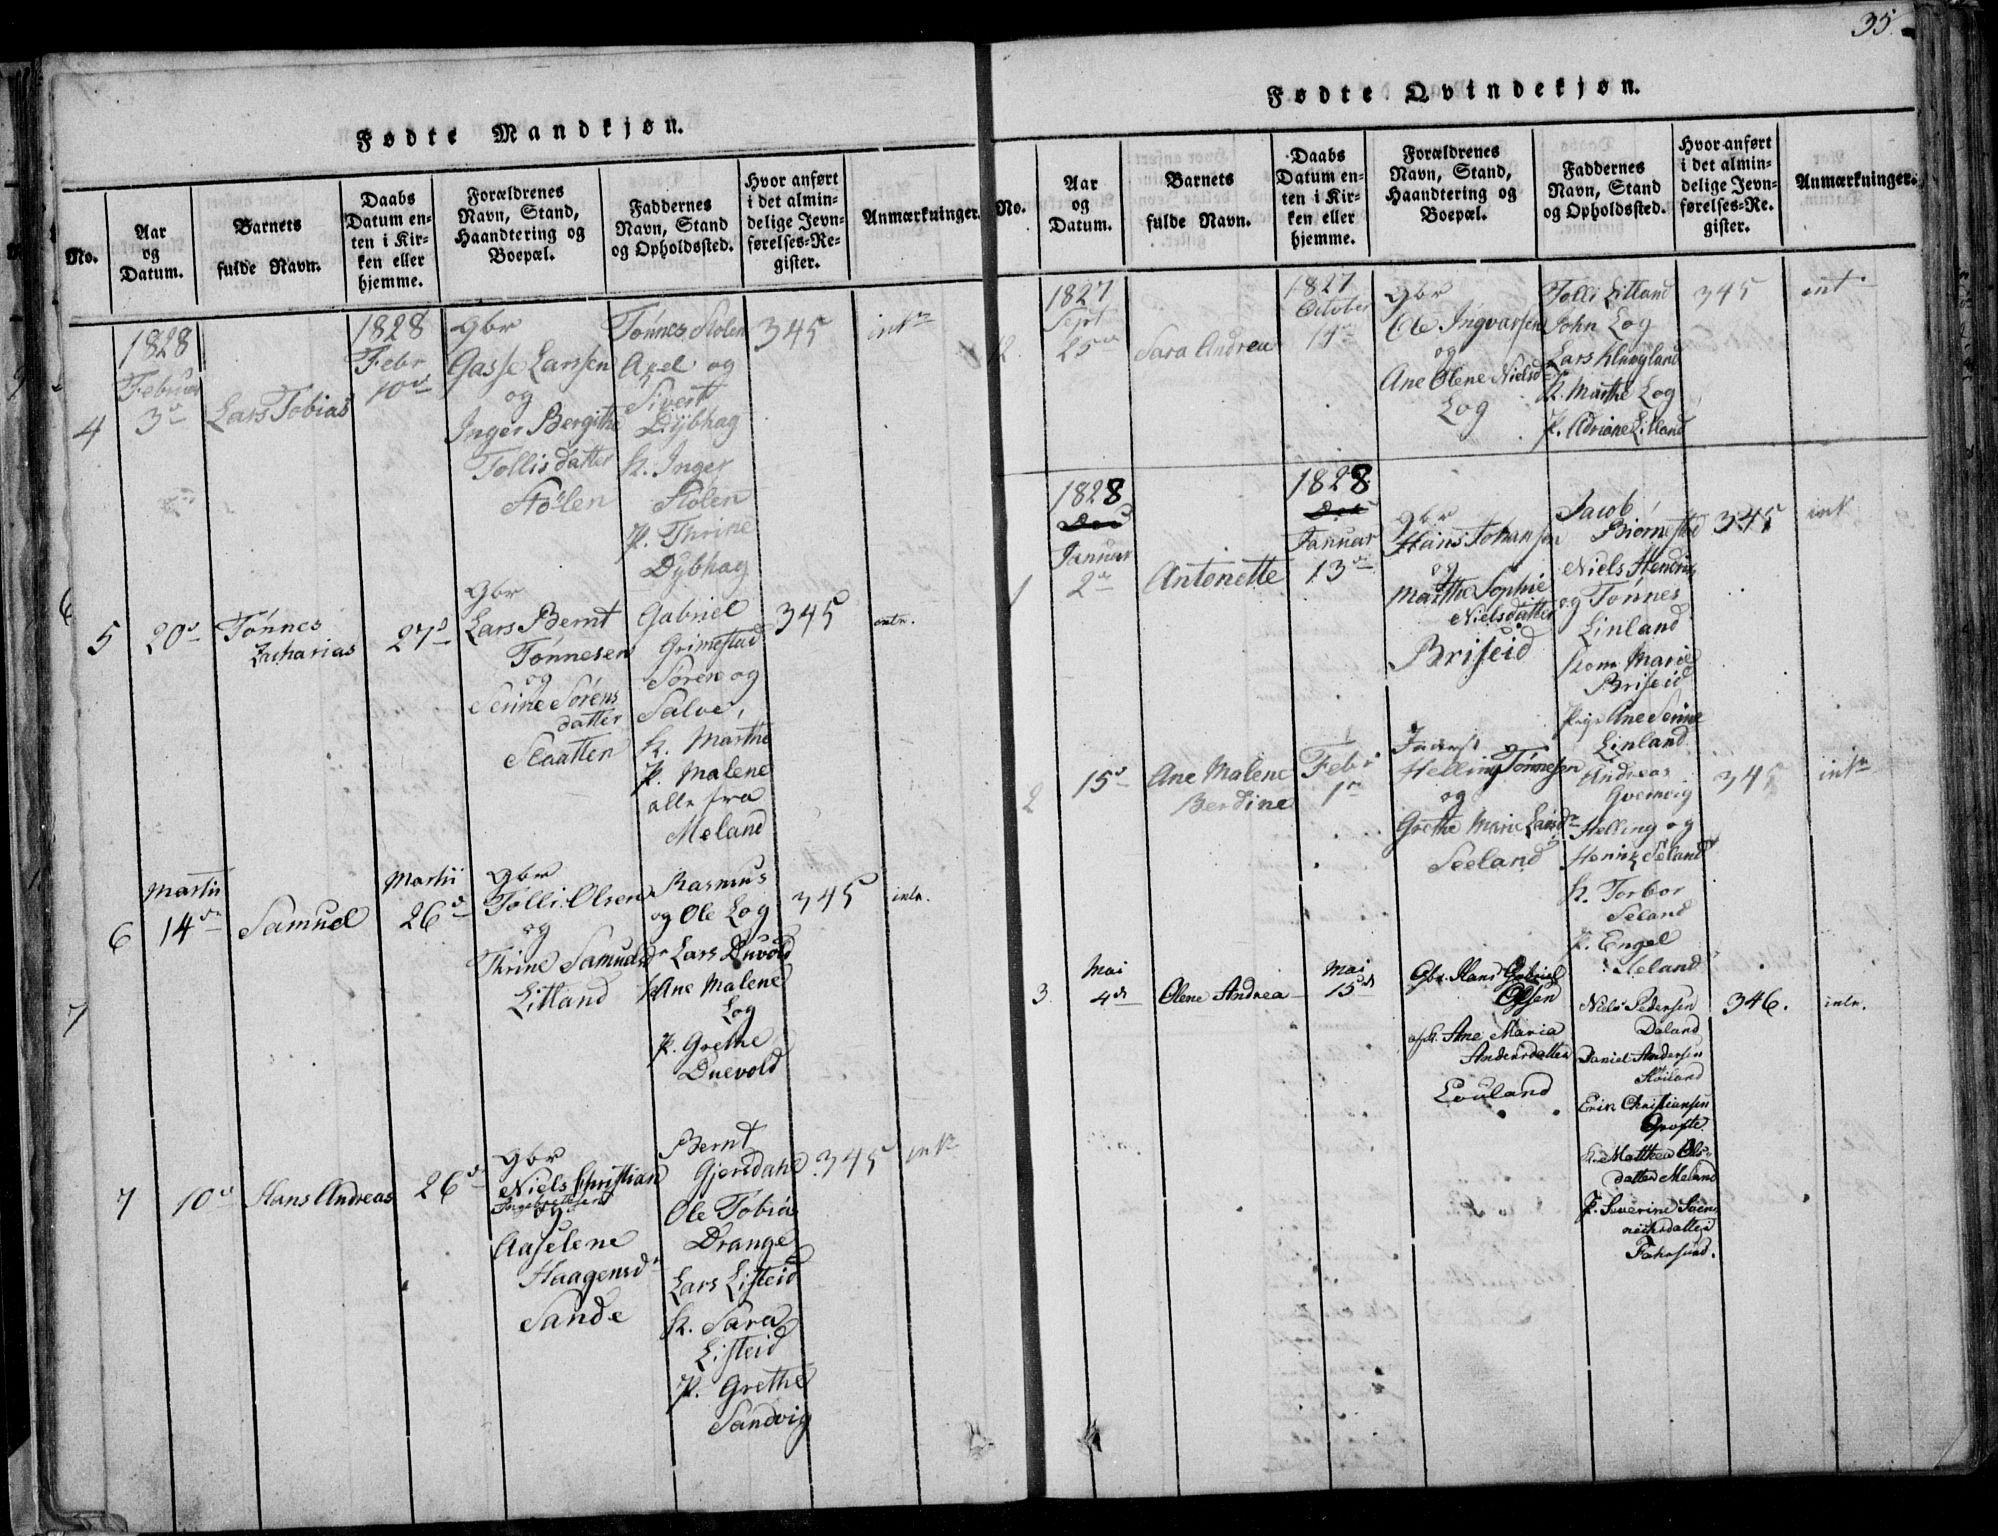 35.
Fødte Mandkjøn.
No.
Aar
og
Datum.
Barnets
fulde Navn.
Daabs
Datum en-
ten i Kir-
ken eller
hjemme.
Forældrenes
Navn, Stand,
Haandtering og
Boepæl.
Faddernes
Navn, Stand
og Opholdssted.
Hvor anført
i det almin-
delige Jevn-
førelses-Re-
gister.
Anmærkninger.
4
1828
Februar
3d
Lars Tobias
1828
Febr
10d
gbr
Gasse Larssen
og
Inger Bergithe
Tollisdatter
Stölen
Tönnes Stolen
Axel og
Sivert
Dÿbhag
K. Inger
Stölen
P. Thrine
Dÿbhag
345
intr
5
20d
Tönnes
Zacharias
27d
gbr
Lars Bernt
Tönnesen
og
Serine Sörens
datter
Slaatten
Gabriel
Grimestad
Sören og
Salve,
K. Marthe
P. Malene
alle fra
Meland
345
intr.
6
Martii
14de
Samuel
Martii
26d
gbr
Tolli Olsen
og
Thrine Samuelsdr
Litland
Rasmus
og Ole Log
Lars Duvold
K Ane Malene
Log
P. Grethe
Duevold
345
intr.
7
7
10d
Hans Andreas
26d
gbr
Niels Christian
Ingebretsen
og
Aaselene
Haagensdr
Sande
Bernt
Gjersdahl
Ole Tobias
Drange
Lars Listeid
K. Sara
Listeid
P. Grethe
Sandvig
345
intr
Fødte Qvindekjøn.
No.
Aar
og
Datum.
Barnets
fulde Navn.
Daabs
Datum en-
ten i Kir-
ken eller
hjemme.
Forældrenes
Navn, Stand,
Haandtering og
Boepæl.
Faddernes
Navn, Stand
og Opholdssted.
Hvor anført
i det almin-
delige Jevn-
førelses-Re-
gister.
Anmærkninger.
12
1827
Sept
25de
Sara Andrea
1827
October
14
gbr
Ole Ingvarsen
og
Ane Olene Nielsdr
Log
Tolli Litland
John Log
Lars Klungland
K. Marthe Log
P. Adriane Litland
345
int.
1
1828
Januar
2de
Antonette
1828
Januar
13de
gbr
Hans Johansen
og
Marthe Sophie
Nielsdatter
Briseid
Jacob
Biörnestad
Niels Hendrik
og Tönnes
Linland
Kone Marie
Briseid
Pige Ane Serine
Linland
345
intr
2
15d
Ane Malene
Berdine
Febr
1
Helling Tönnesen
og
Grethe Marie Larsdr
Seeland
Andreas
Helling og
Henrik Seland
K. Torbor
Seland
P. Engel
Seland
345
intr
3
Mai
4de
Olene Andrea
Mai
15de
Gbr. Hans Gabriel
Olsen
og K. Ane Maria
Andersdatter
Louland
Niels Pedersen
Daland
Daniel Andersen
Höiland
Erik Christiansen
K. Matthea Ols-
datter Meland
P. Severine Sören
Farsund.
346.
intr.